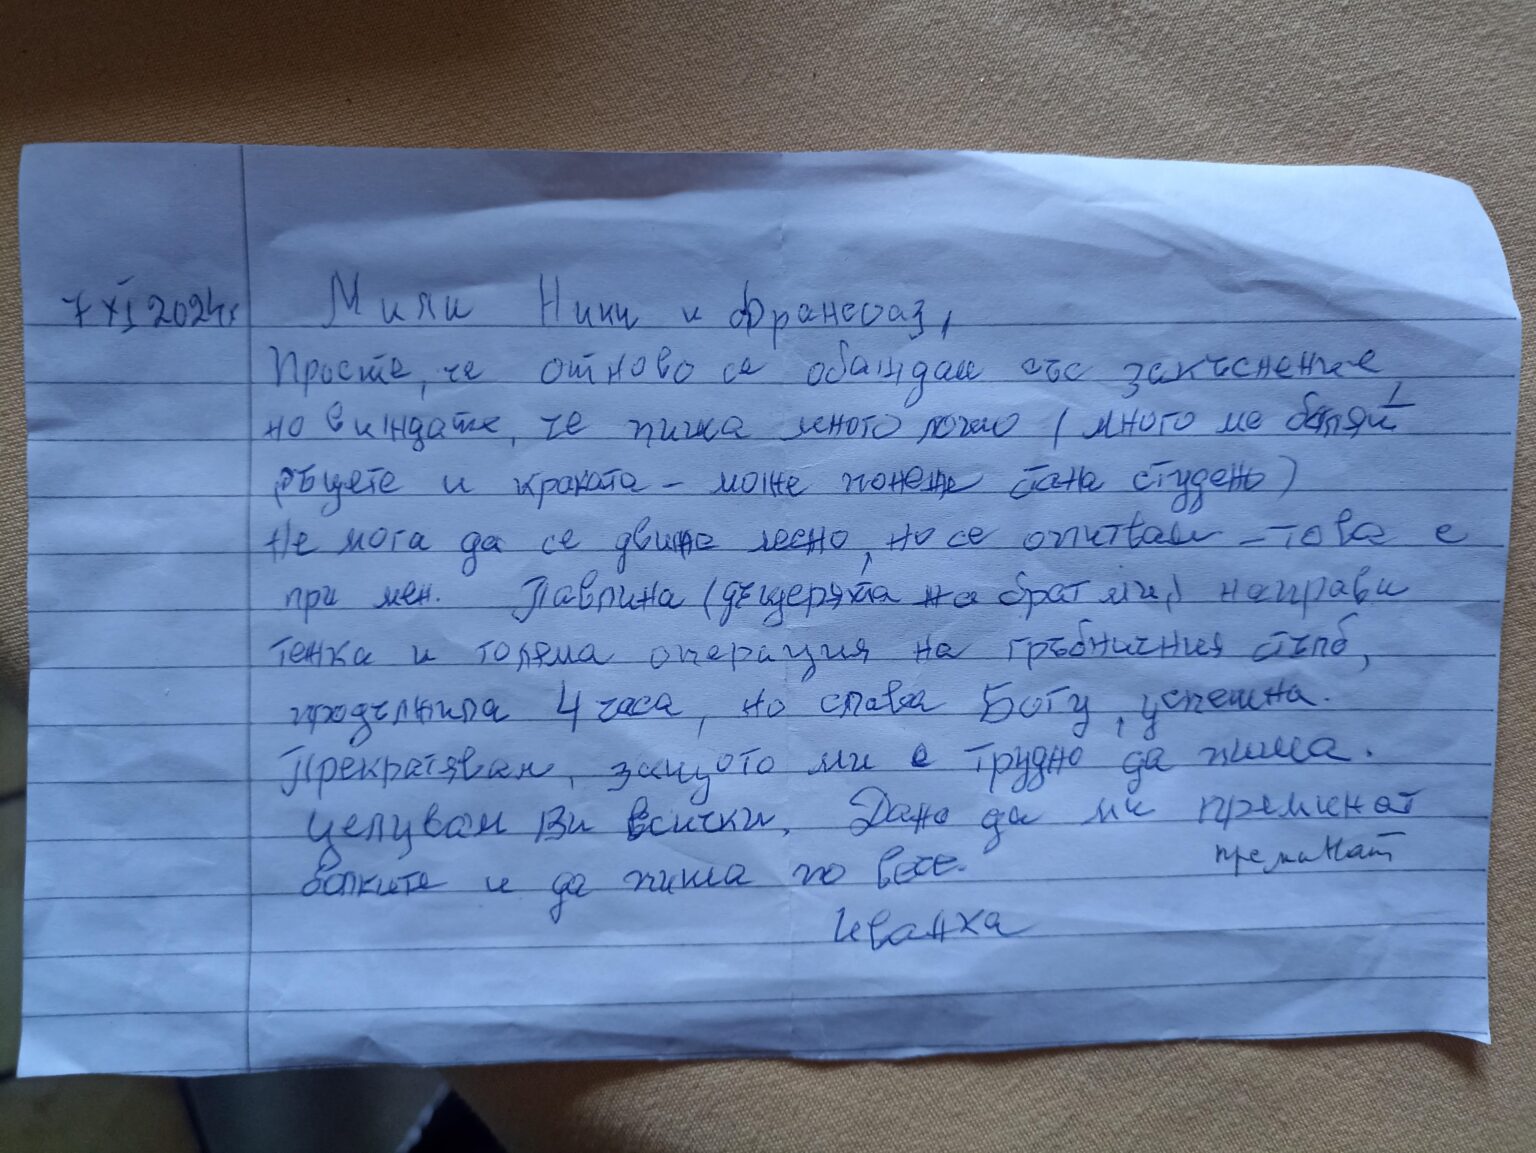 7 XI 2024г
Мили Ники и Франсоаз,
Простете, че отново се обаждам със закъснение
но виждате, че пиша много лошо (много ме болят
ръцете и краката - може понеже стана студено)
Не мога да се движа лесно, но се опитвам - това е
при мен. Павлина (дъщерята на брат ми) направи
тежка и голяма операция на гръбначния стълб,
продължила 4 часа, но слава Богу, успешна.
Прекратявам, защото ми е трудно да пиша.
Целувам Ви всички. Дано да ми преминат
преминат
болките и да пиша по
Иванка